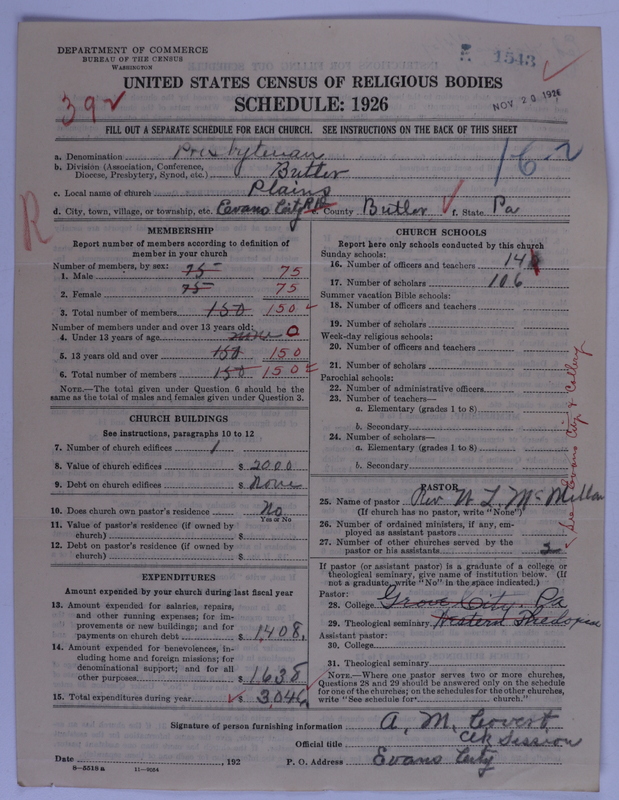 DEPARTMENT OF COMMERCE
BUREAU OF THE CENSUS
WASHINGTON
1543
NOV 20 1926
392
UNITED STATES CENSUS OF RELIGIOUS BODIES
SCHEDULE: 1926
FILL OUT A SEPARATE SCHEDULE FOR EACH CHURCH. SEE INSTRUCTIONS ON THE BACK OF THIS SHEET
16-2
a. Denomination Presbyterian
b. Division (Association, Conference, Diocese, Presbytery, Synod, etc.) Butler
c. Local name of church Plains
d. City, town, village, or township, etc. Evans City County Butler f. State Pa
R
MEMBERSHIP
Report number of members according to definition of member in your church
Number of members, by sex:
1. Male 75 75
2. Female 75 75
3. Total number of members 150 150
Number of members under and over 13 years old:
4. Under 13 years of age none 0
5. 13 years old and over 150 150
6. Total number of members 150 150
NOTE.—The total given under Question 6 should be the same as the total of males and females given under Question 3.
CHURCH BUILDINGS
See instructions, paragraphs 10 to 12
7. Number of church edifices 1
8. Value of church edifices $ 2000
9. Debt on church edifices $ None
10. Does church own pastor's residence? No
Yes or No
11. Value of pastor's residence (if owned by church) $
12. Debt on pastor's residence (if owned by church) $
EXPENDITURES
Amount expended by your church during last fiscal year
13. Amount expended for salaries, repairs, and other running expenses; for improvements or new buildings; and for payments on church debt $ 1408.
14. Amount expended for benevolences, including home and foreign missions; for denominational support; and for all other purposes $ 1638
15. Total expenditures during year $ 3046
CHURCH SCHOOLS
Report here only schools conducted by this church
Sunday schools:
16. Number of officers and teachers 14
17. Number of scholars 106
Summer vacation Bible schools:
18. Number of officers and teachers
19. Number of scholars
Week-day religious schools:
20. Number of officers and teachers
21. Number of scholars
Parochial schools:
22. Number of administrative officers
23. Number of teachers—
a. Elementary (grades 1 to 8)
b. Secondary
24. Number of scholars—
a. Elementary (grades 1 to 8)
b. Secondary
PASTOR
25. Name of pastor Rev. W. L. McMillan
(If church has no pastor, write "None")
26. Number of ordained ministers, if any, employed as assistant pastors
27. Number of other churches served by the pastor or his assistants 2
See Evans City & Callery
If pastor (or assistant pastor) is a graduate of a college or theological seminary, give name of institution below. (If not a graduate, write "No" in the space indicated.)
Pastor:
28. College Grove City, Pa
29. Theological seminary Western
Assistant pastor:
30. College
31. Theological seminary
NOTE.—Where one pastor serves two or more churches, Questions 28 and 29 should be answered only on the schedule for one of the churches; on the schedules for the other churches, write "See schedule for church."
Signature of person furnishing information A. M. Covert
Official title Clk Session
Date , 192 P. O. Address Evans City
8—5518 a 11—9054